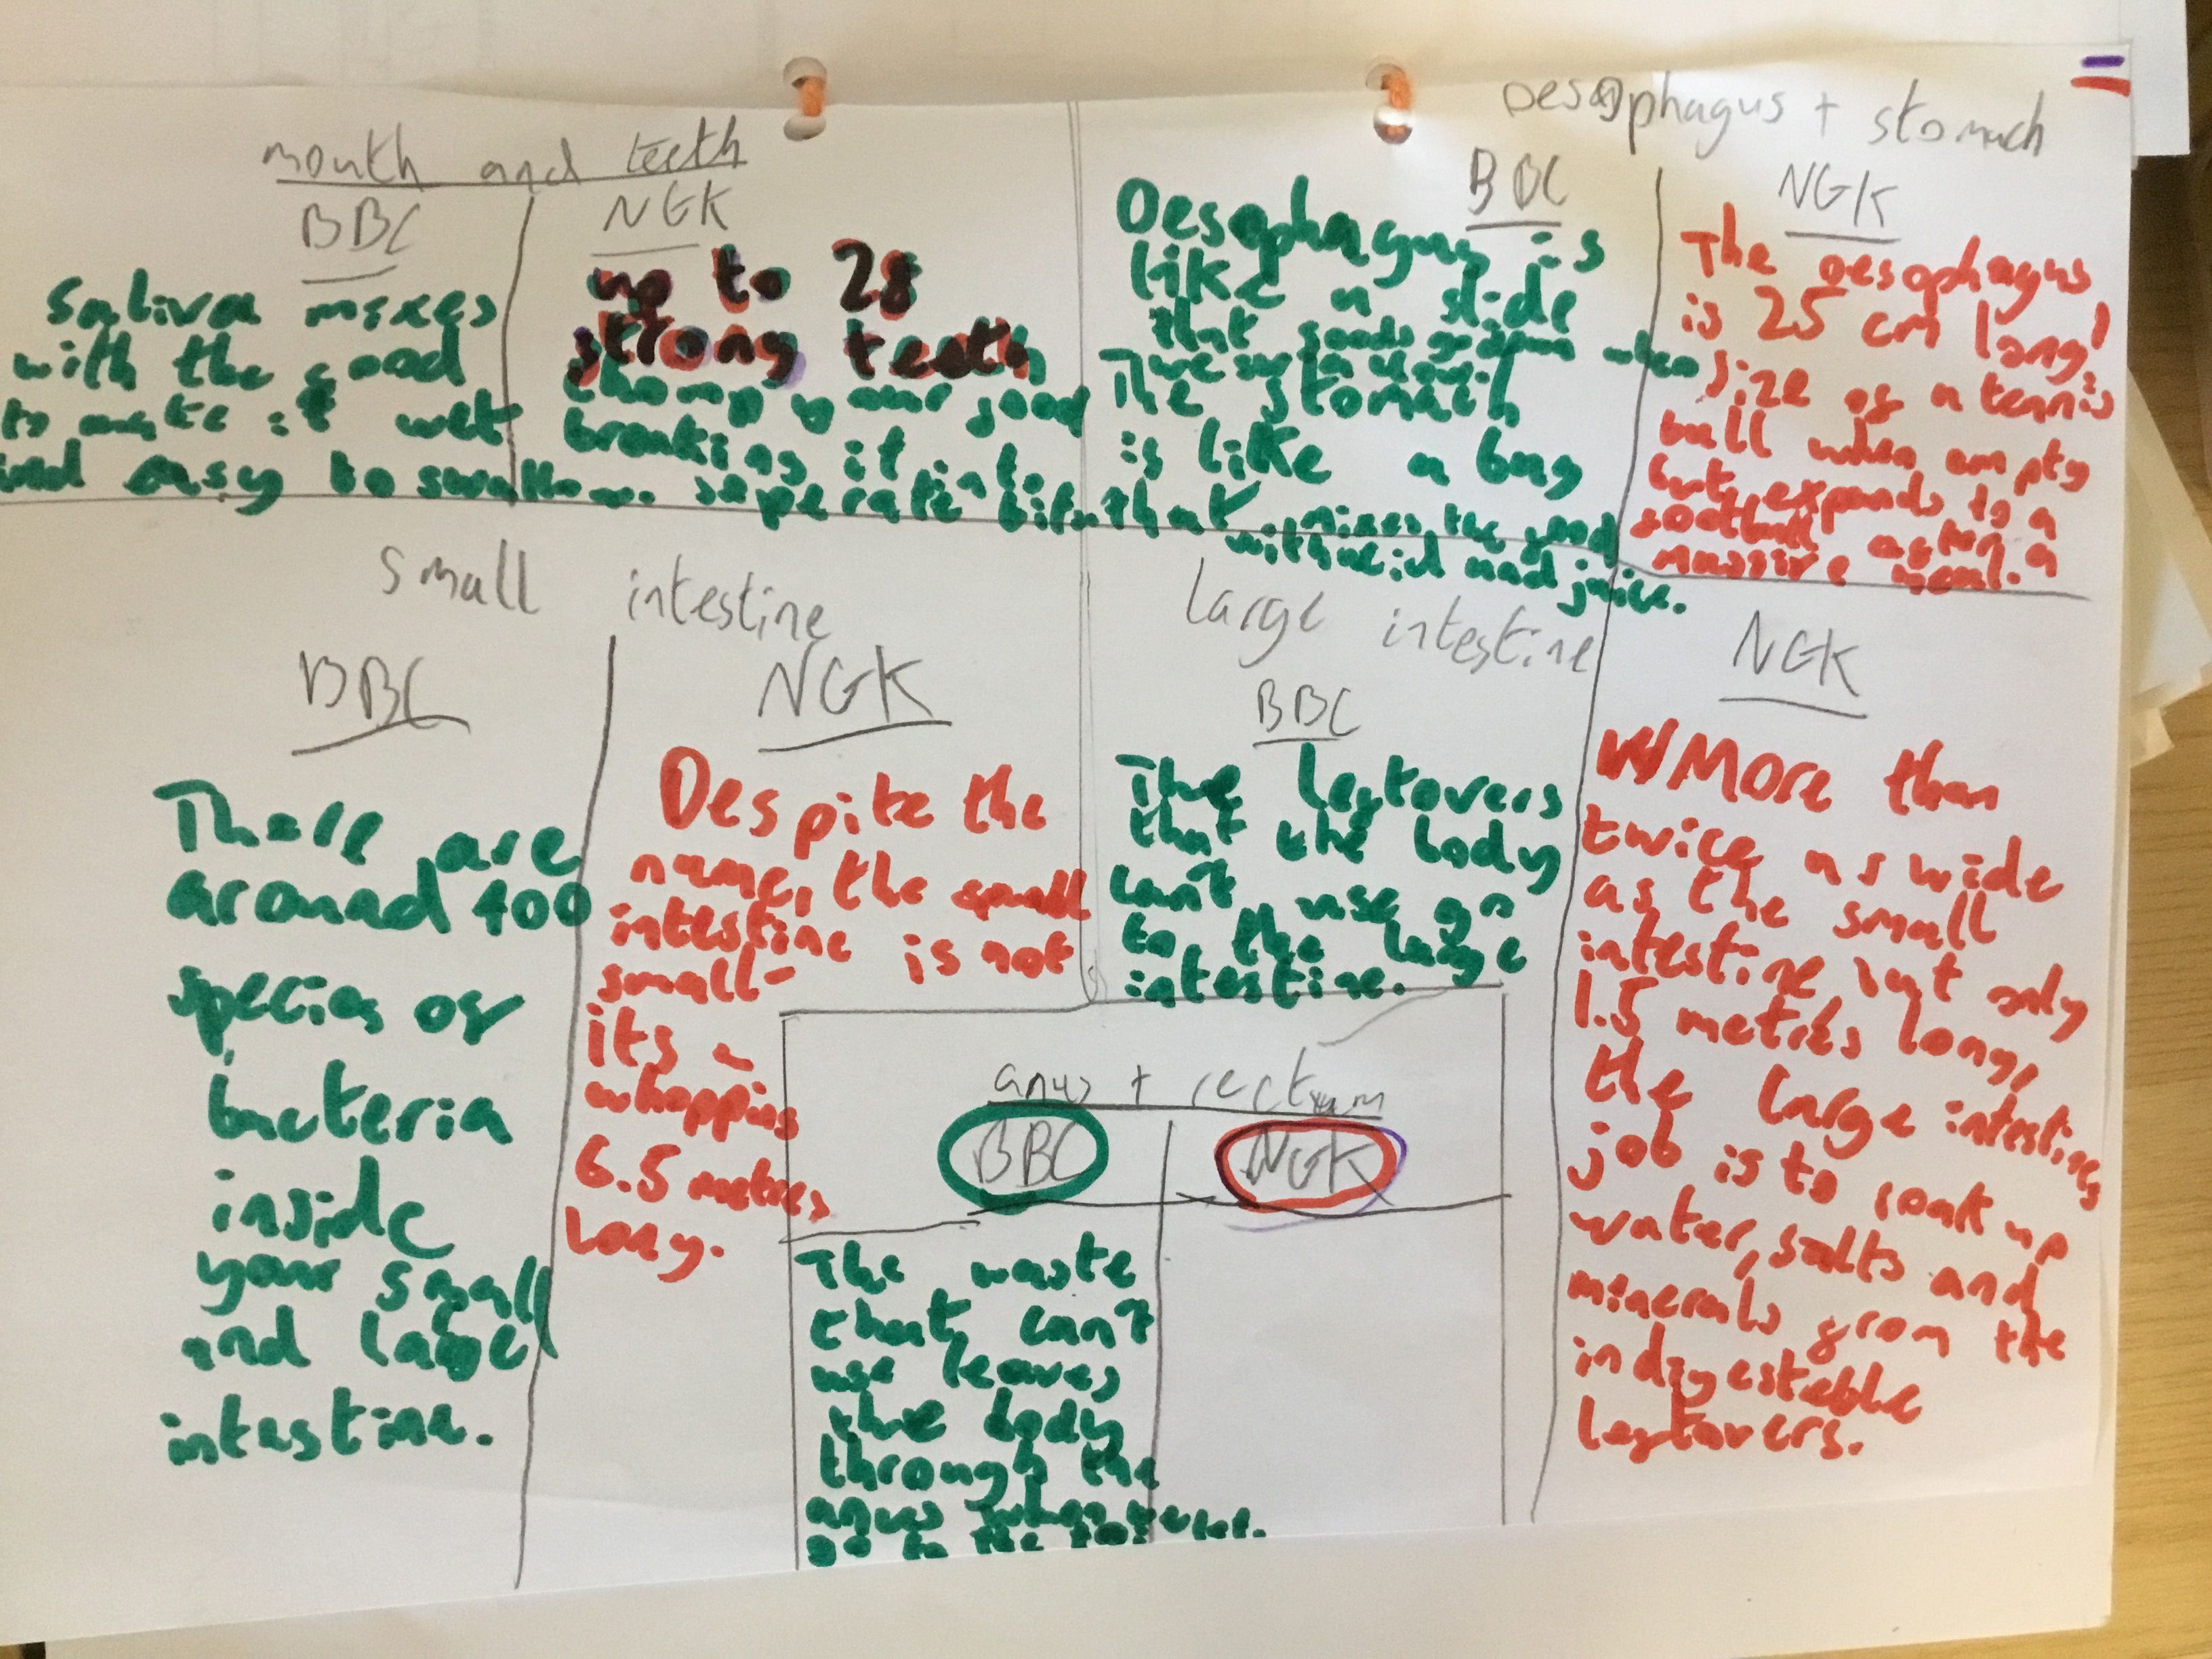 mouth and teeth
BBC
Saliva mixes
with the food
to make it wet
and easy to swallow.
NGK
up to 28
strong teeth
chomp your food
breaking it into
seperate bits.
Oesophagus + stomach
BBC
Oesophagus is
like a slide
that sends food down when
we swallow.
The stomach
is like a bag
that mixes the food
with acid and juice.
NGK
The oesophagus
is 25 cm long!
size of a tennis
ball when empty
but expands to a
football after a
massive meal.
small intestine
BBC
There are
around 400
species of
bacteria
inside
your small
and large
intestine.
NGK
Despite the
name, the small
intestine is not
small-
its a
whopping
6.5 metres
long.
large intestine
BBC
The leftovers
that the body
can't use go
to the large
intestine.
NGK
More than
twice as wide
as the small
intestine but only
1.5 metres long,
the large intestines
job is to soak up
water, salts and
minerals from the
indigestable
leftovers.
anus + rectum
BBC
The waste
that can't
use leaves
the body
through the
anus when we
go to the toilet.
NGK